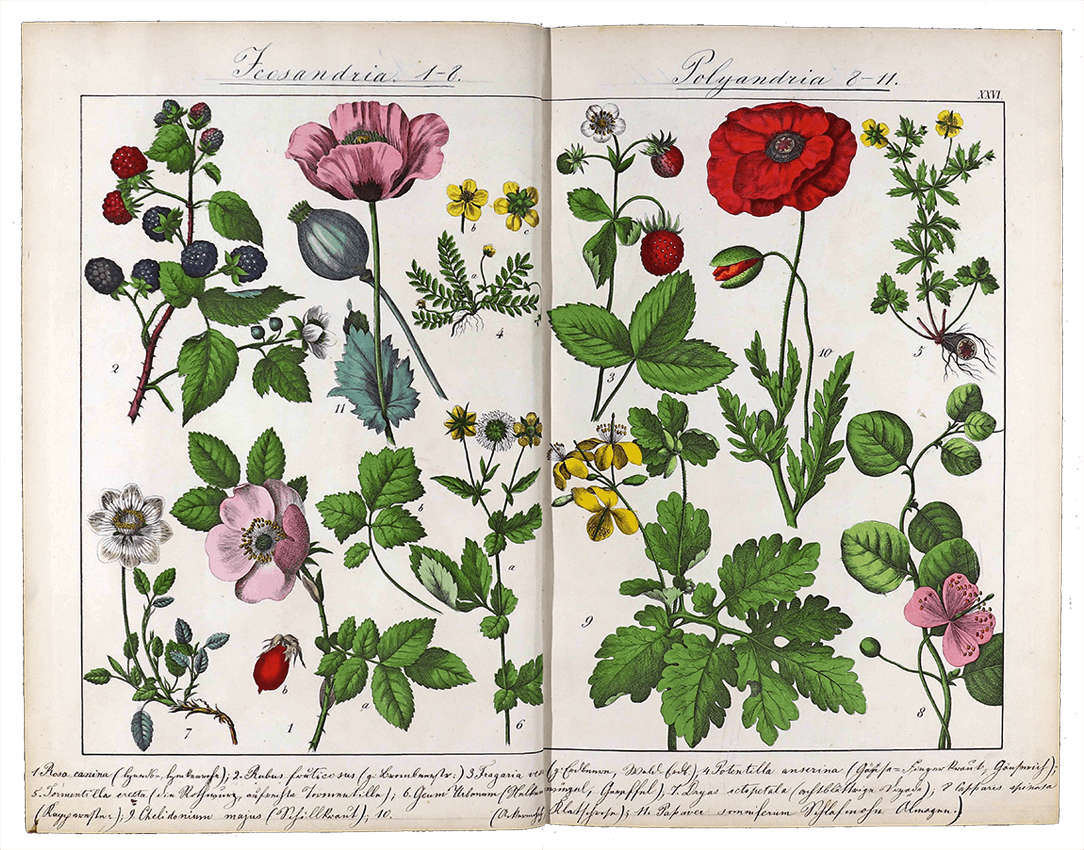 Icosandria. 1-8.
Polyandria 8-11.
XXVI.
2
b
c
a
4
11
3
10
5
b
a
9
7
b
1
a
6
8
1. Rosa canina (Hunds-, Heckenrose); 2. Rubus fruticosus (g. Brombeerstr:) 3 Fragaria (g: Erdbeere, Wald Erdb.); 4 Potentilla anserina (Gänse=Fingerkraut, Gänserich);
5. Tormentilla erecta (Tormentilla); 6. Geum Urbanum; 7. Dryas octopetala (achtblättrige Dryade), 8 Capparis spinosa
(Kappernstr:); 9. Chelidonium majus (Schöllkraut); 10. Klatschrose); 11. Papaver somniferum Schlafmohn